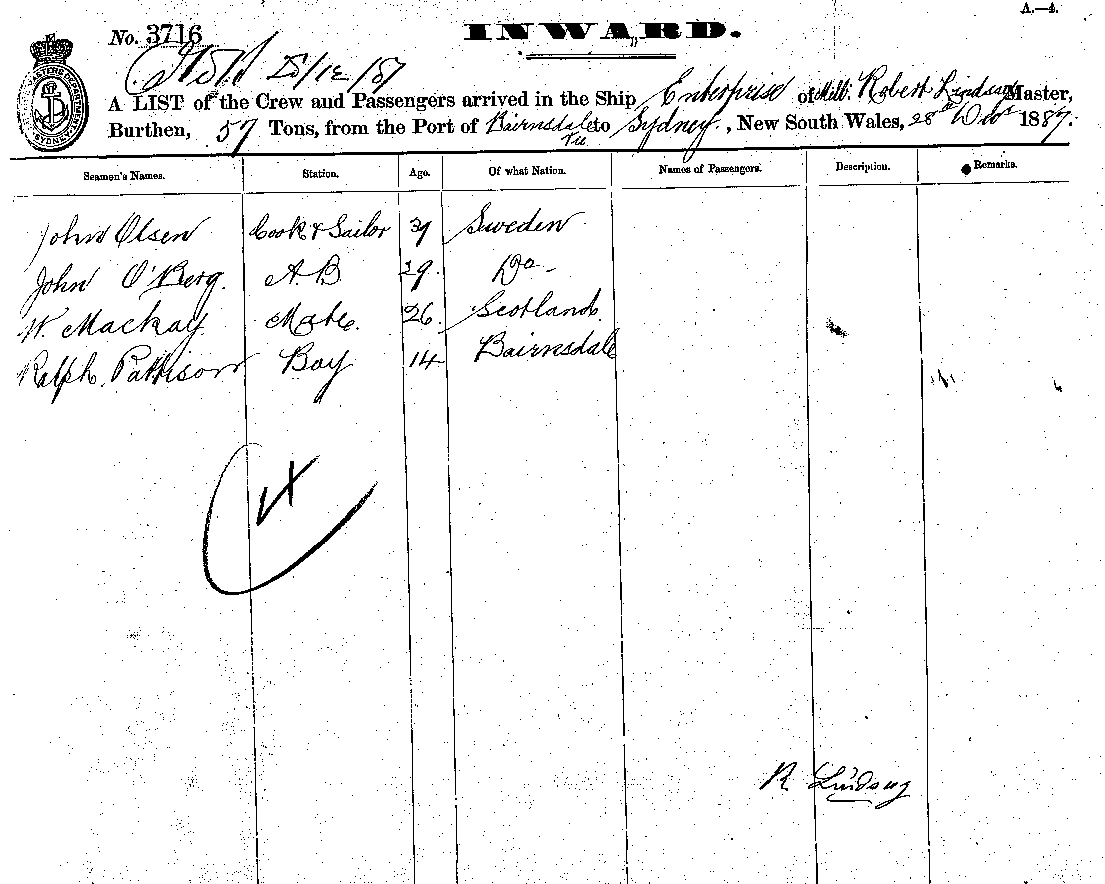 A.—4.
No. 3716 INWARD.
28/12/87
A LIST of the Crew and Passengers arrived in the Ship Enterprise of Melb. Robert Lindsay Master,
Burthen, 57 Tons, from the Port of Bairnsdale Vic to Sydney, New South Wales, 28th Decr 1887.
Seamen's Names. Station. Age. Of what Nation. Names of Passengers. Description. Remarks.
John Olsen Cook & Sailor Sweden
John O'Berg. A.B 29. Do
W. Mackay Mate. 26 Scotland.
Ralph. Pattison Boy 14 Bairnsdale
R Lindsay